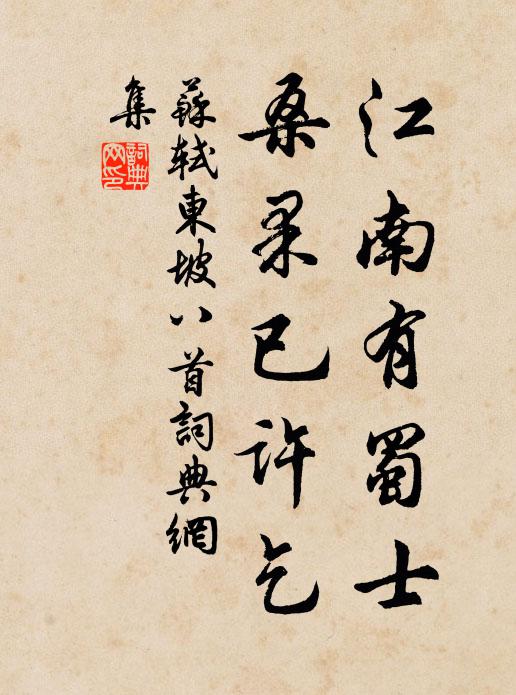 江南有蜀士
桑果已許乞
蘇軾東坡八首詞典網
集
詞典網印